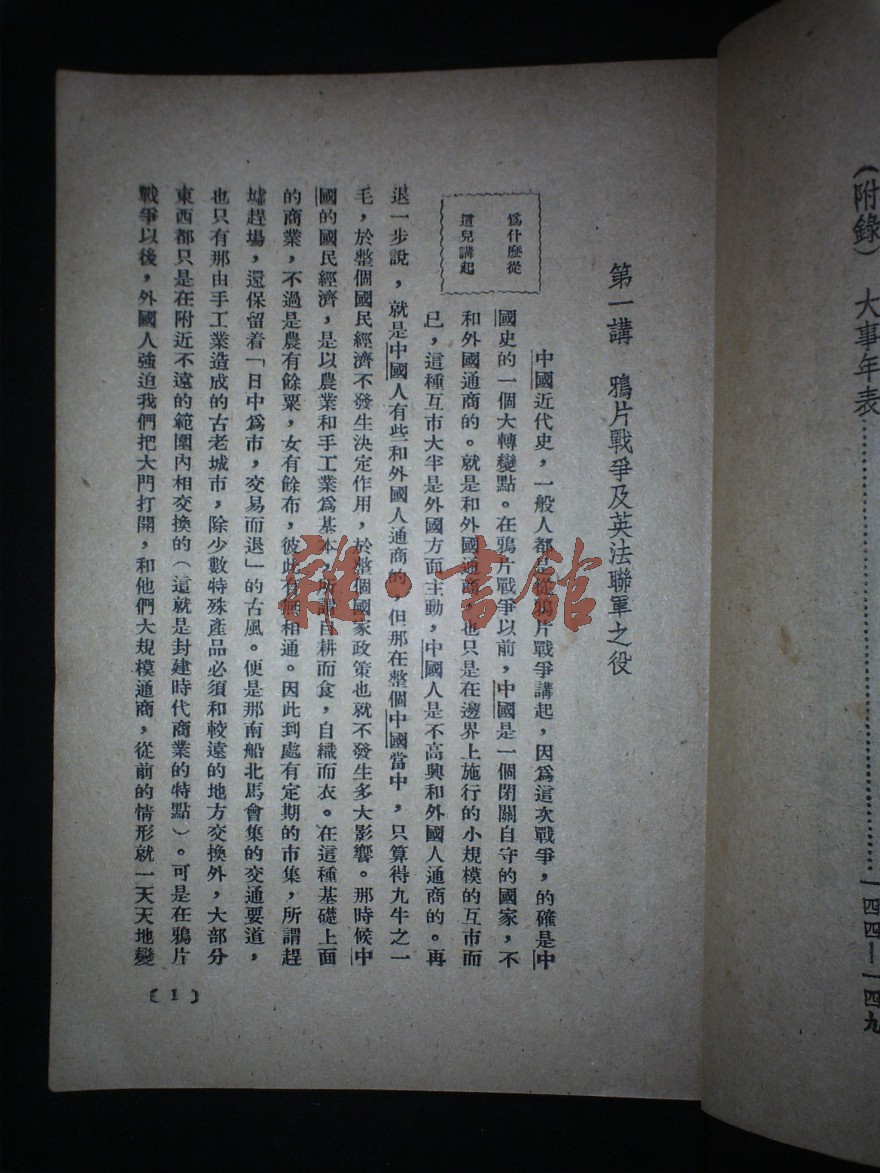 (附錄) 大事年表……………一四四—一四九
第一講 鴉片戰爭及英法聯軍之役
爲什麽從
這兒講起
中國近代史,一般人都是從鴉片戰爭講起,因爲這次戰爭,的確是中
國史的一個大轉變點。在鴉片戰爭以前,中國是一個閉關自守的國家,不
和外國通商的。就是和外國通商,也只是在邊界上施行的小規模的互市而
已,這種互市大半是外國方面主動,中國人是不高興和外國人通商的。再
退一步說,就是中國人有些和外國人通商的,但那在整個中國當中,只算得九牛之一
毛,於整個國民經濟不發生決定作用,於整個國家政策也就不發生多大影響。那時候中
國的國民經濟,是以農業和手工業爲基本,所謂自耕而食,自織而衣。在這種基礎上面
的商業,不過是農有餘粟,女有餘布,彼此有無相通。因此到處有定期的市集,所謂趕
墟趕場,還保留着「日中爲市,交易而退」的古風。便是那南船北馬會集的交通要道,
也只有那由手工業造成的古老城市,除少數特殊產品必須和較遠的地方交換外,大部分
東西都只是在附近不遠的範圍內相交換的(這就是封建時代商業的特點)。可是在鴉片
戰爭以後,外國人強迫我們把大門打開,和他們大規模通商,從前的情形就一天天地變
〔1〕
雜·書館